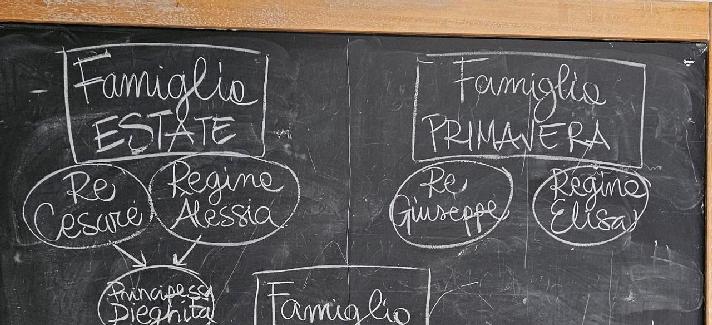 Famiglia
ESTATE
Famiglia
PRIMAVERA
Re
Cesare
Regina
Alessia
Re
Giuseppe
Regina
Elisa
Principessa
Dieghita
Famiglia